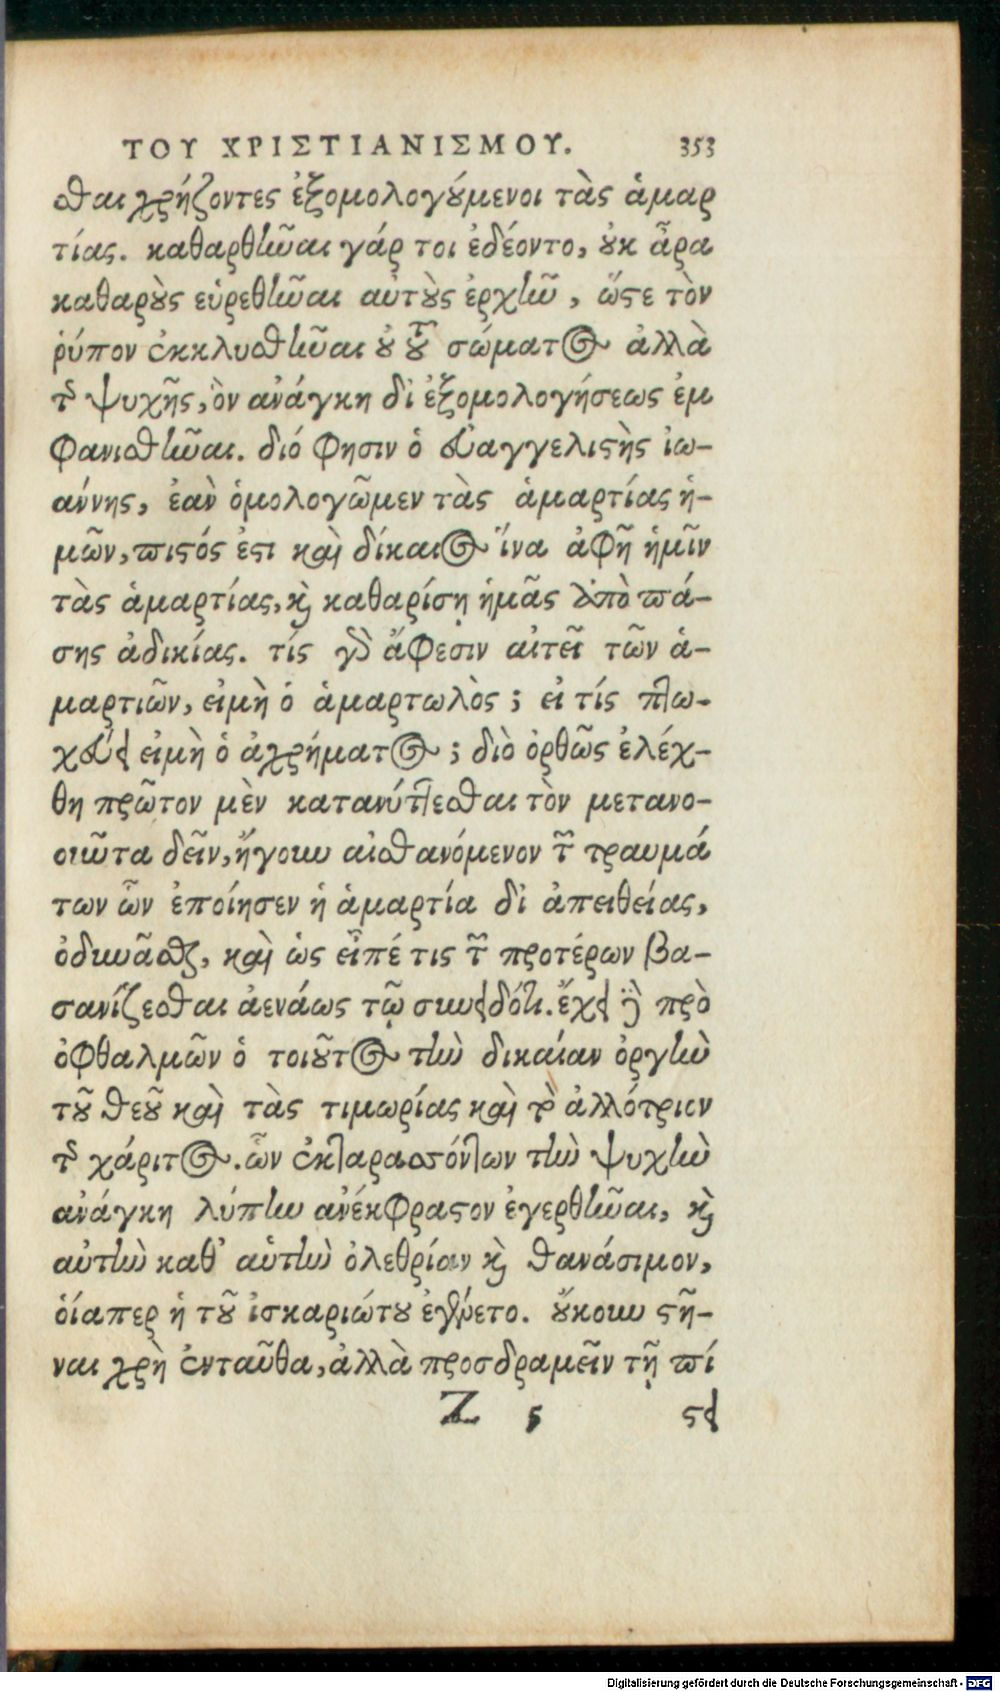 ΤΟΥ ΧΡΙΣΤΙΑΝΙΣΜΟΥ. 353
σθαι χρήζοντες ἐξομολογούμενοι τὰς ἁμαρ
τίας. καθαρθῆναι γάρ τοι ἐδέοντο, οὐκ ἆρα
καθαροὺς εὑρεθῆναι αὐτοὺς ἐχρῆν, ὥστε τὸν
ῥύπον ἐκκλυσθῆναι οὐ τοῦ σώματος ἀλλὰ
τῆς ψυχῆς, ὃν ἀνάγκη δι ἐξομολογήσεως ἐμ
φανισθῆναι. διό φησιν ὁ εὐαγγελιστὴς ἰω-
άννης, ἐαὰν ὁμολογῶμεν τὰς ἁμαρτίας ἡ-
μῶν, πιστός ἐστι καὶ δίκαιος ἵνα ἀφῇ ἡμῖν
τὰς ἁμαρτίας, καὶ καθαρίσῃ ἡμᾶς ἀπὸ πά-
σης ἀδικίας. τίς γὰρ ἄφεσιν αἰτεῖ τῶν ἁ-
μαρτιῶν, εἰμὴ ὁ ἁμαρτωλὸς; εἰ τίς πτω-
χεύει εἰμὴ ὁ ἀχρήματος; διὸ ὀρθῶς ἐλέχ-
θη πρῶτον μὲν κατανύττεσθαι τὸν μετανο-
οιῶτα δεῖν, ἤγουν αἰσθανόμενον τῶν τραυμά
των ὧν ἐποίησεν ἡ ἁμαρτία δι ἀπειθείας,
ὀδυνᾶσθαι, καὶ ὡς εἶπέ τις τῶν προτέρων βα-
σανίζεσθαι ἀενάως τῷ συνειδότι. ἔχει γὰρ πρὸ
ὀφθαλμῶν ὁ τοιοῦτος τὴν δικαίαν ὀργὴν
τοῦ θεοῦ καὶ τὰς τιμωρίας καὶ τὸ ἀλλότριον
τῆς χάριτος. ὧν ἐκταρασσόντων τὴν ψυχὴν
ἀνάγκη λύπην ἀνέκφραστον ἐγερθῆναι, καὶ
αὐτὴν καθ' αὑτὴν ὀλεθρίαν καὶ θανάσιμον,
ὁίαπερ ἡ τοῦ ἰσκαριώτου ἐγένετο. οὔκουν στῆ-
ναι χρὴ ἐνταῦθα, ἀλλὰ προσδραμεῖν τῇ πί
Z 5 στει